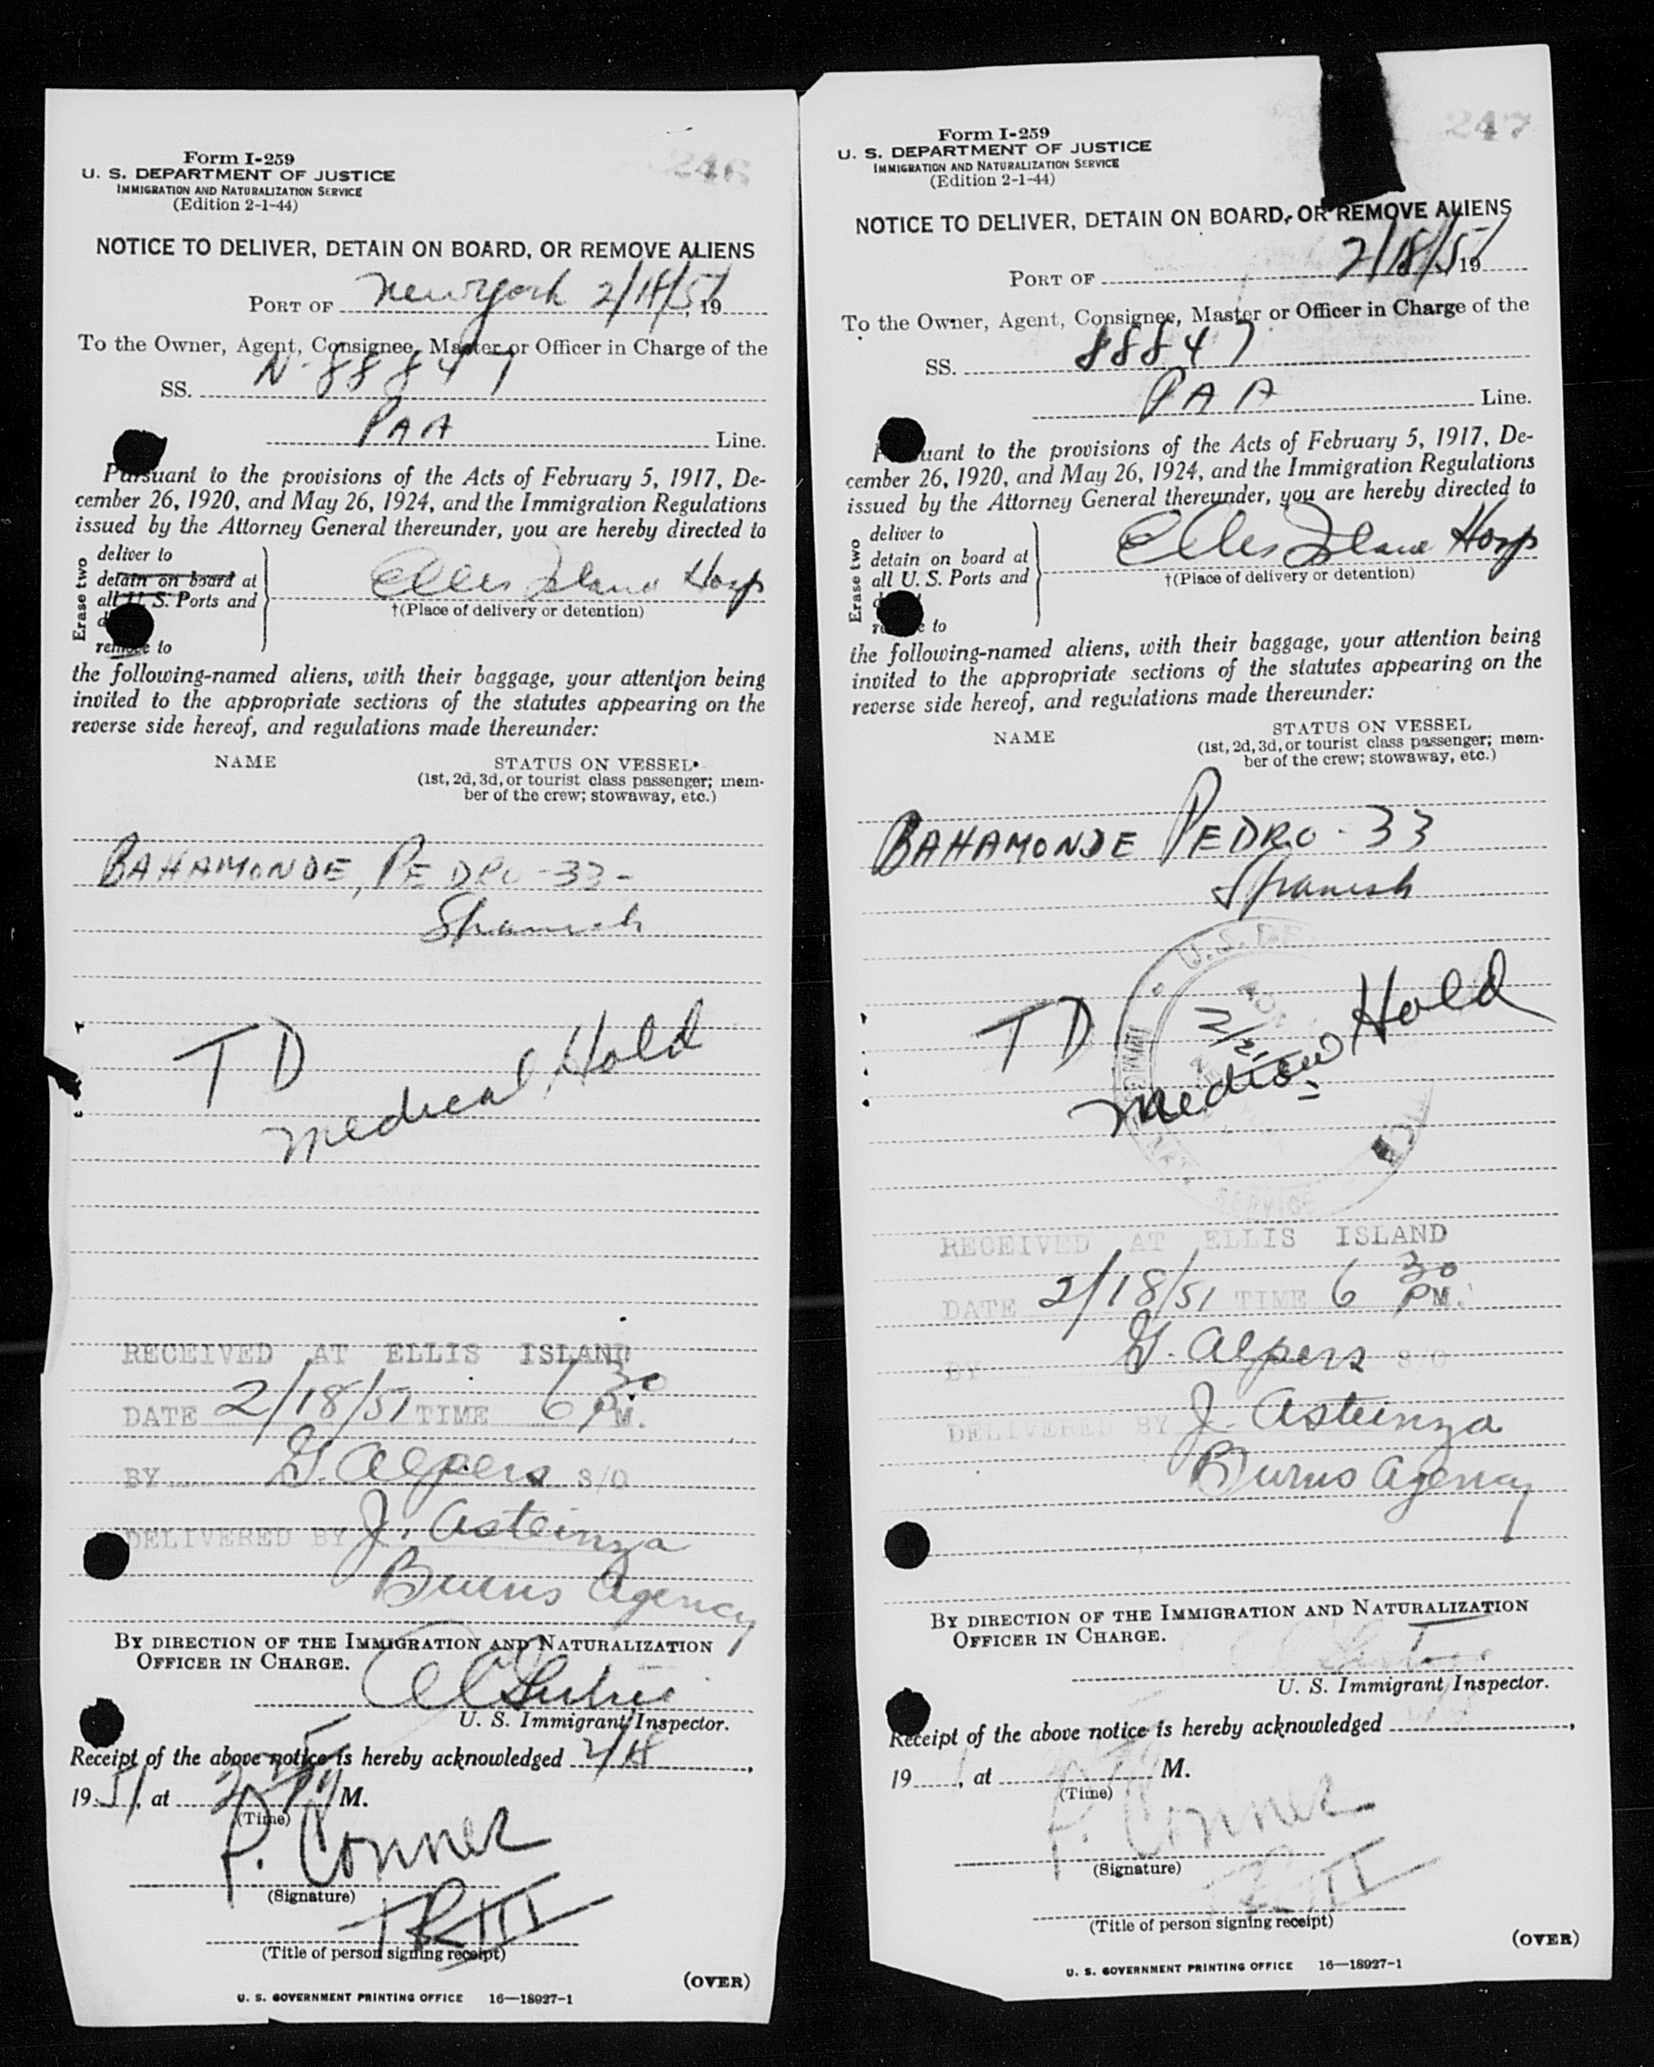 246
Form I-259
U. S. DEPARTMENT OF JUSTICE
IMMIGRATION AND NATURALIZATION SERVICE
(Edition 2-1-44)
NOTICE TO DELIVER, DETAIN ON BOARD, OR REMOVE ALIENS
PORT OF New York 2/18/51, 19
To the Owner, Agent, Consignee, Master or Officer in Charge of the
SS. N-88847
PAA Line.
Pursuant to the provisions of the Acts of February 5, 1917, De-
cember 26, 1920, and May 26, 1924, and the Immigration Regulations
issued by the Attorney General thereunder, you are hereby directed to
Erase two
deliver to
detain on board at
all U. S. Ports and
remove to
Ellis Island Hosp
†(Place of delivery or detention)
the following-named aliens, with their baggage, your attention being
invited to the appropriate sections of the statutes appearing on the
reverse side hereof, and regulations made thereunder:
NAME STATUS ON VESSEL
(1st, 2d, 3d, or tourist class passenger; mem-
ber of the crew; stowaway, etc.)
BAHAMONDE, PEDRO - 33 -
Spanish
TD
Medical Hold
RECEIVED AT ELLIS ISLAND
DATE 2/18/51 TIME 6 30 PM.
BY G. Alpers S/O
DELIVERED BY J. Asteinza
Burns Agency
BY DIRECTION OF THE IMMIGRATION AND NATURALIZATION
OFFICER IN CHARGE.
U. S. Immigrant Inspector.
Receipt of the above notice is hereby acknowledged 2/18,
1951, at M.
(Time)
P. Conner
(Signature)
(Title of person signing receipt)
(OVER)
U. S. GOVERNMENT PRINTING OFFICE 16—18927-1
247
Form I-259
U. S. DEPARTMENT OF JUSTICE
IMMIGRATION AND NATURALIZATION SERVICE
(Edition 2-1-44)
NOTICE TO DELIVER, DETAIN ON BOARD, OR REMOVE ALIENS
PORT OF 2/18/51, 19
To the Owner, Agent, Consignee, Master or Officer in Charge of the
SS. 88847
PAA Line.
Pursuant to the provisions of the Acts of February 5, 1917, De-
cember 26, 1920, and May 26, 1924, and the Immigration Regulations
issued by the Attorney General thereunder, you are hereby directed to
Erase two
deliver to
detain on board at
all U. S. Ports and
to
Ellis Island Hosp
†(Place of delivery or detention)
the following-named aliens, with their baggage, your attention being
invited to the appropriate sections of the statutes appearing on the
reverse side hereof, and regulations made thereunder:
NAME STATUS ON VESSEL
(1st, 2d, 3d, or tourist class passenger; mem-
ber of the crew; stowaway, etc.)
BAHAMONDE PEDRO - 33
Spanish
TD
Medical Hold
RECEIVED AT ELLIS ISLAND
DATE 2/18/51 TIME 6 30 PM.
BY G. Alpers S/O
DELIVERED BY J. Asteinza
Burns Agency
BY DIRECTION OF THE IMMIGRATION AND NATURALIZATION
OFFICER IN CHARGE.
U. S. Immigrant Inspector.
Receipt of the above notice is hereby acknowledged ,
19 , at M.
(Time)
P. Conner
(Signature)
(Title of person signing receipt)
(OVER)
U. S. GOVERNMENT PRINTING OFFICE 16—18927-1